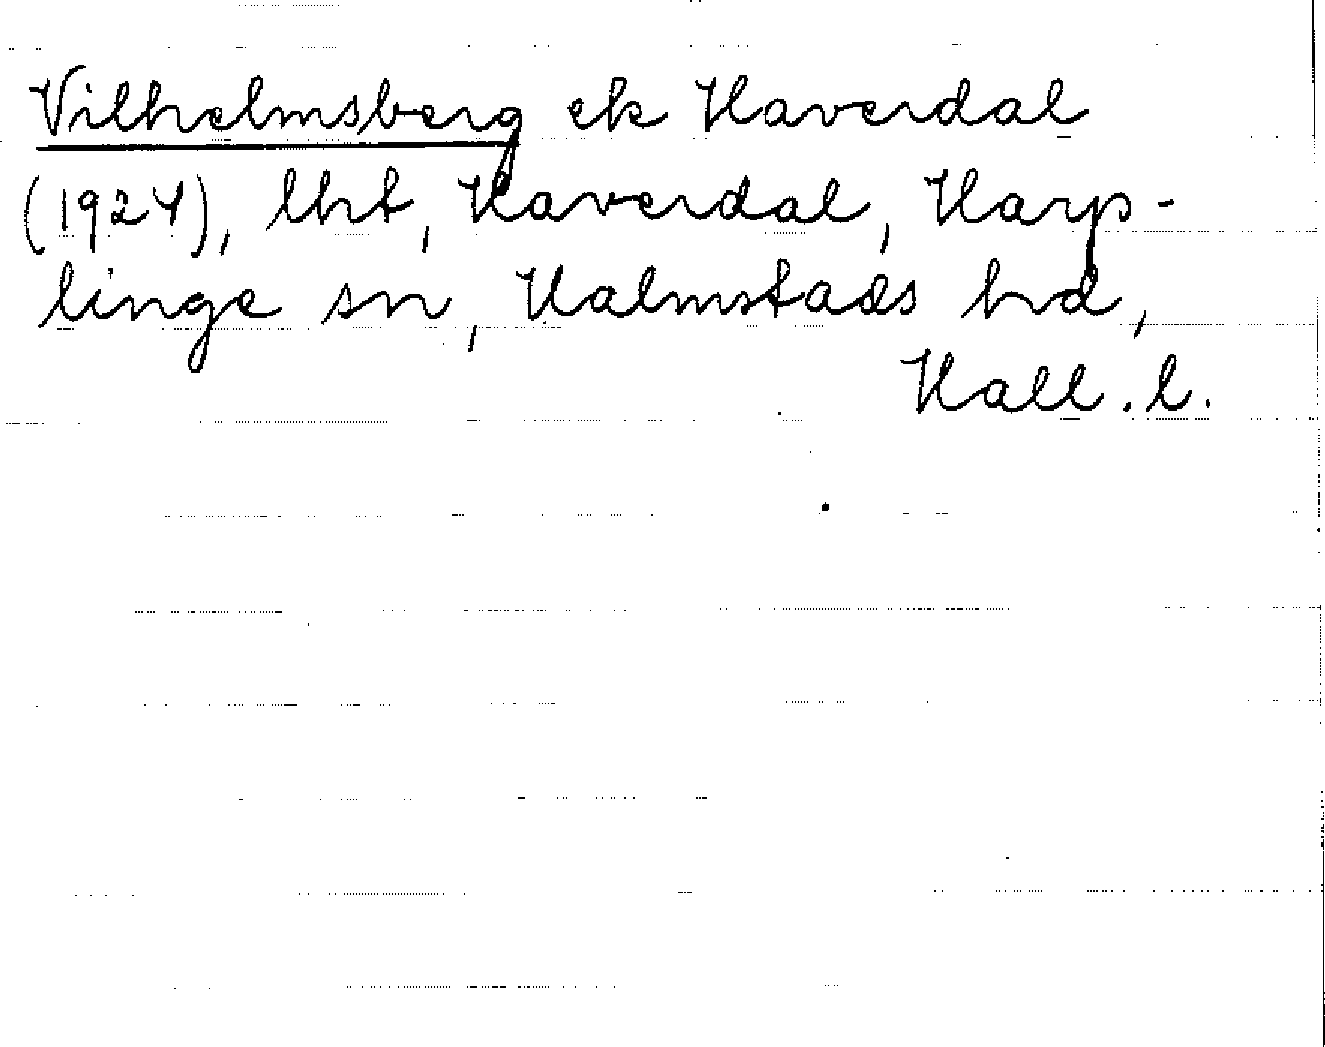 Vilhelmsberg ek Haverdal
(1924), lht, Haverdal, Harp-
linge sn, Halmstads hd,
Hall. l.